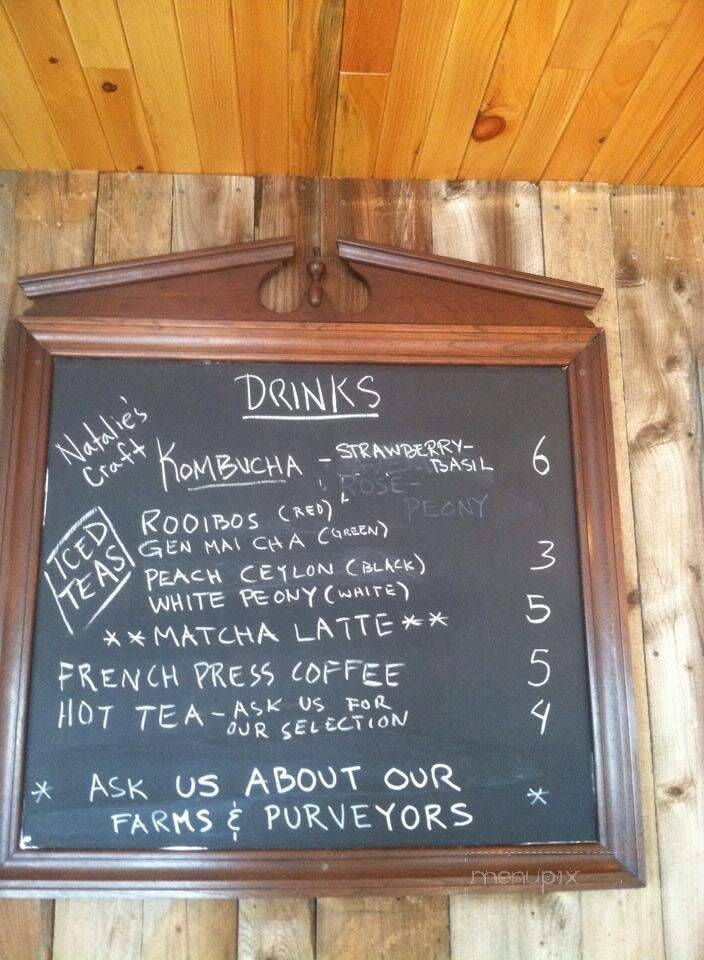 DRINKS
Natalie's
Craft
KOMBUCHA - STRAWBERRY-
BASIL 6
ROSE-
PEONY
ICED
TEAS
ROOIBOS (RED)
GEN MAI CHA (GREEN)
PEACH CEYLON (BLACK) 3
WHITE PEONY (WHITE)
**MATCHA LATTE** 5
FRENCH PRESS COFFEE 5
HOT TEA - ASK US FOR
OUR SELECTION 4
* ASK US ABOUT OUR
FARMS & PURVEYORS *
menupix